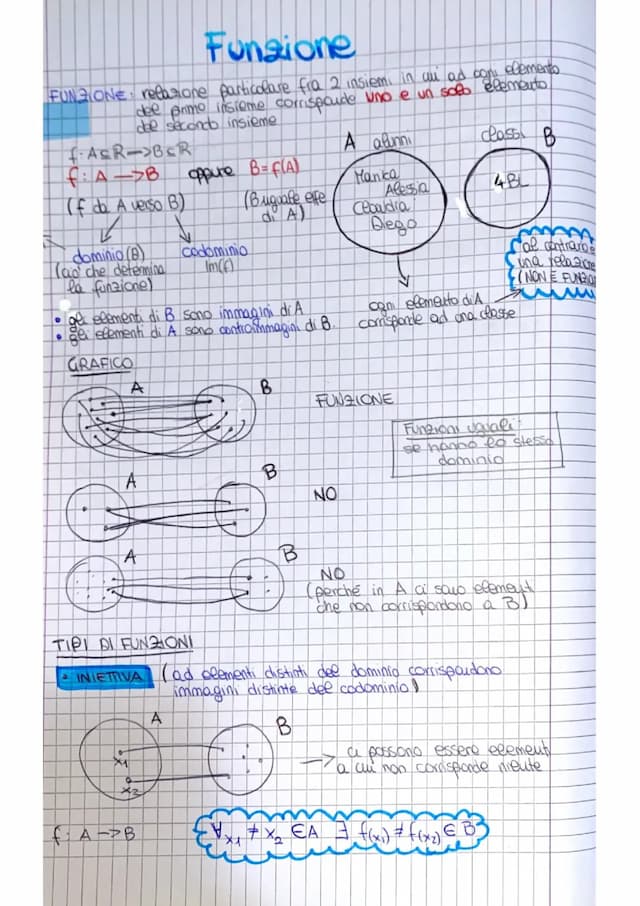 Funzione
FUNZIONE: relazione particolare fra 2 insiemi in cui ad ogni elemento
del primo insieme corrisponde uno e un solo elemento
del secondo insieme
f: A⊆R→B⊆R
f: A→B oppure B=f(A)
(f da A verso B) (B uguale effe
di A)
dominio (B) codominio
(cio' che determina Im(f)
la funzione)
A alunni classi B
Marika
Alessia
Claudia
Diego
4BL
al contrario è
una relazione
(NON È FUNZIONE
ogni elemento di A
corrisponde ad una classe
• gli elementi di B sono immagini di A
• gli elementi di A sono controimmagini di B.
GRAFICO
A B
FUNZIONE
Funzioni uguali:
se hanno lo stesso
dominio
A B
NO
A B
NO
(perché in A ci sono elementi
che non corrispondono a B)
TIPI DI FUNZIONI
• INIETTIVA (ad elementi distinti del dominio corrispondono
immagini distinte del codominio)
A B
x1
x2
→ ci possono essere elementi
a cui non corrisponde niente
f: A→B
∀x1 ≠ x2 ∈A ∃ f(x1) ≠ f(x2) ∈ B